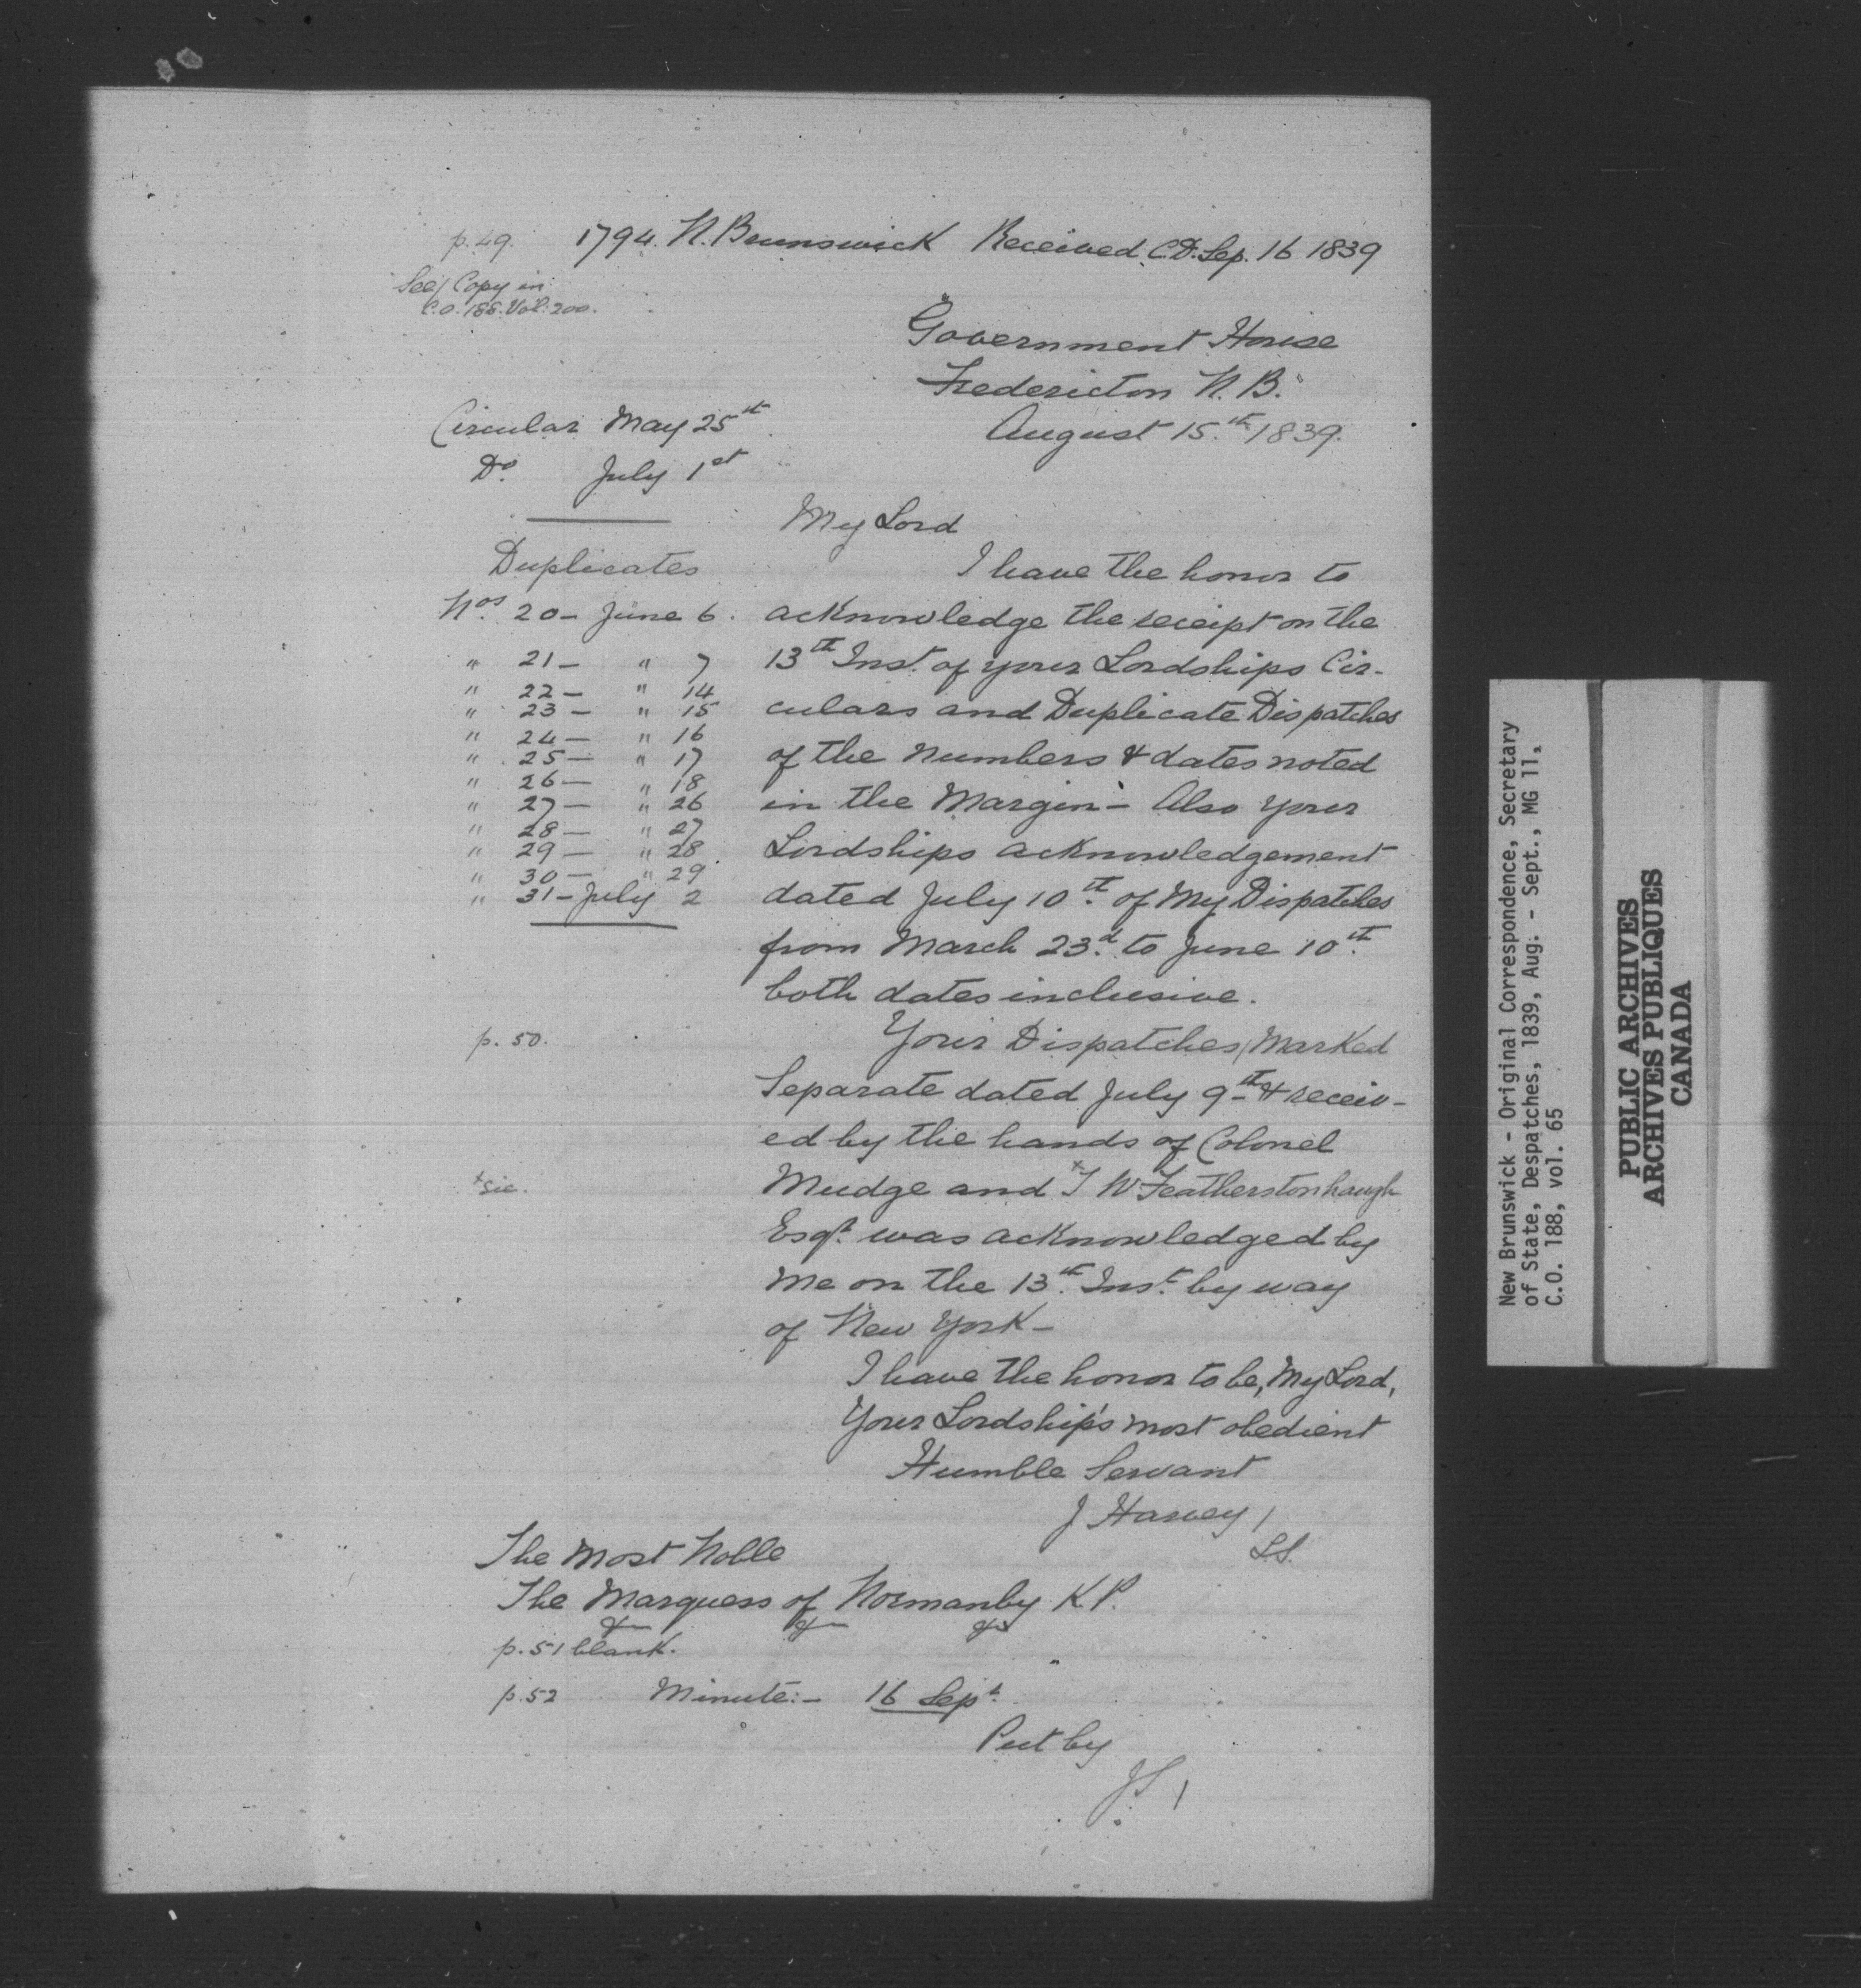 p. 49. 1794. N. Brunswick Received C.D. Sep. 16 1839
See/ Copy in
C.O. 188. Vol. 200.
Government House
Fredericton N. B.
August 15.th 1839.
Circular May 25th
Do. July 1st
My Lord
Duplicates
Nos. 20 - June 6.
" 21 - " 7
" 22 - " 14
" 23 - " 15
" 24 - " 16
" 25 - " 17
" 26 - " 18
" 27 - " 26
" 28 - " 27
" 29 - " 28
" 30 - " 29
" 31 - July 2
I have the honor to
acknowledge the receipt on the
13th Inst. of your Lordships Cir-
culars and Duplicate Dispatches
of the numbers & dates noted
in the Margin - Also your
Lordships acknowledgement
dated July 10th. of My Dispatches
from March 23.d to June 10th.
both dates inclusive.
p. 50.
Your Dispatches, Marked
Separate dated July 9th & receiv-
ed by the hands of Colonel
+sic.
Mudge and +T W Featherstonhaugh
Esqr. was acknowledged by
me on the 13th. Inst. by way
of New York -
I have the honor to be, My Lord,
Your Lordship's most obedient
Humble Servant
J Harvey /
The Most Noble
LS.
The Marquess of Normanby K.P.
& & &
p. 51 blank.
p. 52 Minute:- 16 Sept.
Put by
JS /
New Brunswick - Original Correspondence, Secretary
of State, Despatches, 1839, Aug. - Sept., MG 11,
C.O. 188, vol. 65
PUBLIC ARCHIVES
ARCHIVES PUBLIQUES
CANADA